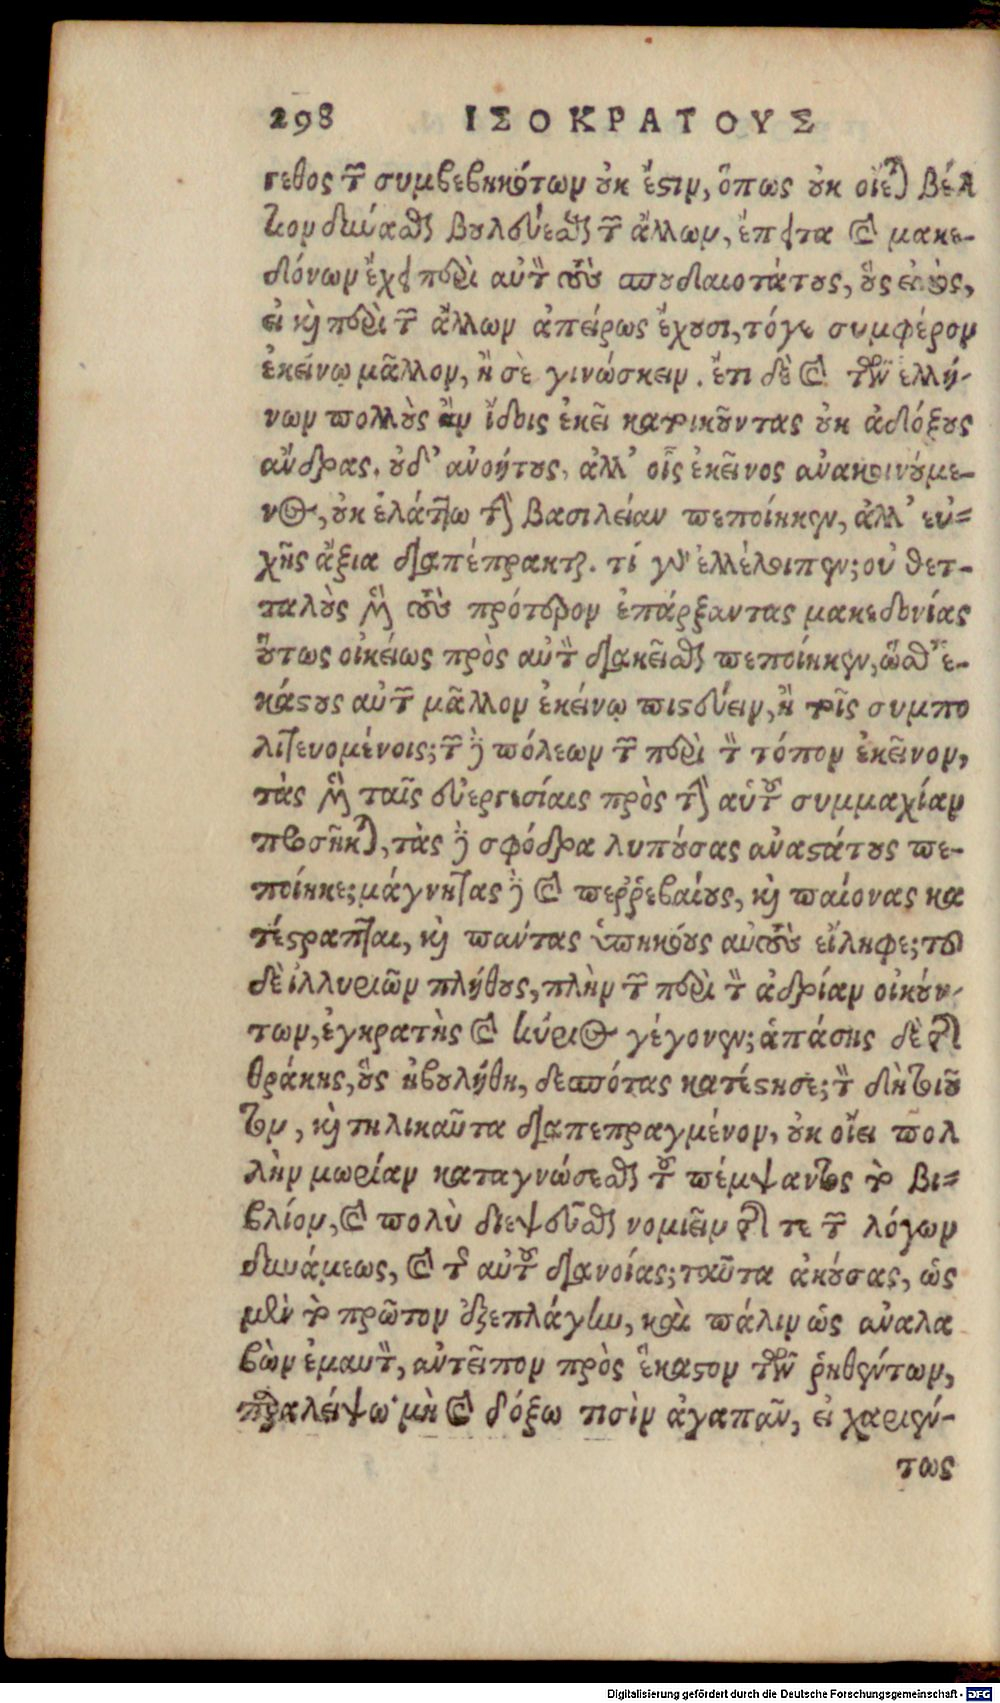 298 ΙΣΟΚΡΑΤΟΥΣ
γεθος τῶν συμβεβηκότων οὐκ ἔστιν, ὅπως οὐκ οἴεται βέλ
τιον δύνασθαι βουλεύεσθαι τῶν ἄλλων, ἔπειτα καὶ μακε-
δόνων ἔχει περὶ αὐτὸν τοὺς σπουδαιοτάτους, οὓς εἰκὸς,
εἰ καὶ περὶ τῶν ἄλλων ἀπείρως ἔχουσι, τόγε συμφέρον
ἐκείνῳ μᾶλλον, ἢ σὲ γινώσκειν. ἔτι δὲ καὶ τῶν ἑλλή-
νων πολλοὺς ἂν ἴδοις ἐκεῖ κατοικοῦντας οὐκ ἀδόξους
ἄνδρας. οὐδ' ἀνοήτους, ἀλλ' οἷς ἐκεῖνος ἀνακοινούμε-
νος, οὐκ ἐλάττω τὴν βασιλείαν πεποίηκεν, ἀλλ' εὐ=
χῆς ἄξια διαπέπρακται. τί γὰρ ἐλλέλοιπεν; οὐ θετ-
ταλοὺς μὲν τοὺς πρότερον ἐπάρξαντας μακεδονίας
οὕτως οἰκείως πρὸς αὐτὸν διακεῖσθαι πεποίηκεν, ὥσθ' ἑ-
κάστους αὐτῶν μᾶλλον ἐκείνῳ πιστεύειν, ἢ τοῖς συμπο
λιτευομένοις; τῶν δὲ πόλεων τῶν περὶ τὸν τόπον ἐκεῖνον,
τὰς μὲν ταῖς εὐεργεσίαις πρὸς τὴν αὑτοῦ συμμαχίαν
προσῆκται, τὰς δὲ σφόδρα λυπούσας ἀναστάτους πε-
ποίηκε; μάγνητας δὲ καὶ περῤῥεβαίους, καὶ παίονας κα
τέστραπται, καὶ πάντας ὑπηκόους αὐτοὺς εἴληφε; τοῦ
δὲ ἰλλυριῶν πλήθους, πλὴν τῶν περὶ τὸν ἀδρίαν οἰκούν-
των, ἐγκρατὴς καὶ κύριος γέγονεν; ἁπάσης δὲ τῆς
θράκης, οὓς ἠβουλήθη, δεσπότας κατέστησε; τὸν δὴ τοιοῦ
τον, καὶ τηλικαῦτα διαπεπραγμένον, οὐκ οἴει πολ
λὴν μωρίαν καταγνώσεσθαι τοῦ πέμψαντος τὸ βι=
βλίον, καὶ πολὺ διεψεῦσθαι νομιεῖν τῆς τε τῶν λόγων
δυνάμεως, καὶ τῆς αὐτοῦ διανοίας; ταῦτα ἀκούσας, ὡς
μὲν τὸ πρῶτον ἐξεπλάγην, καὶ πάλιν ὡς ἀναλα
βὼν ἐμαυτὸν, ἀντεῖπον πρὸς ἕκαστον τῶν ῥηθέντων,
παραλείψω· μὴ καὶ δόξω τισὶν ἀγαπᾶν, εἰ χαριέν-
τως
Digitalisierung gefördert durch die Deutsche Forschungsgemeinschaft - DFG